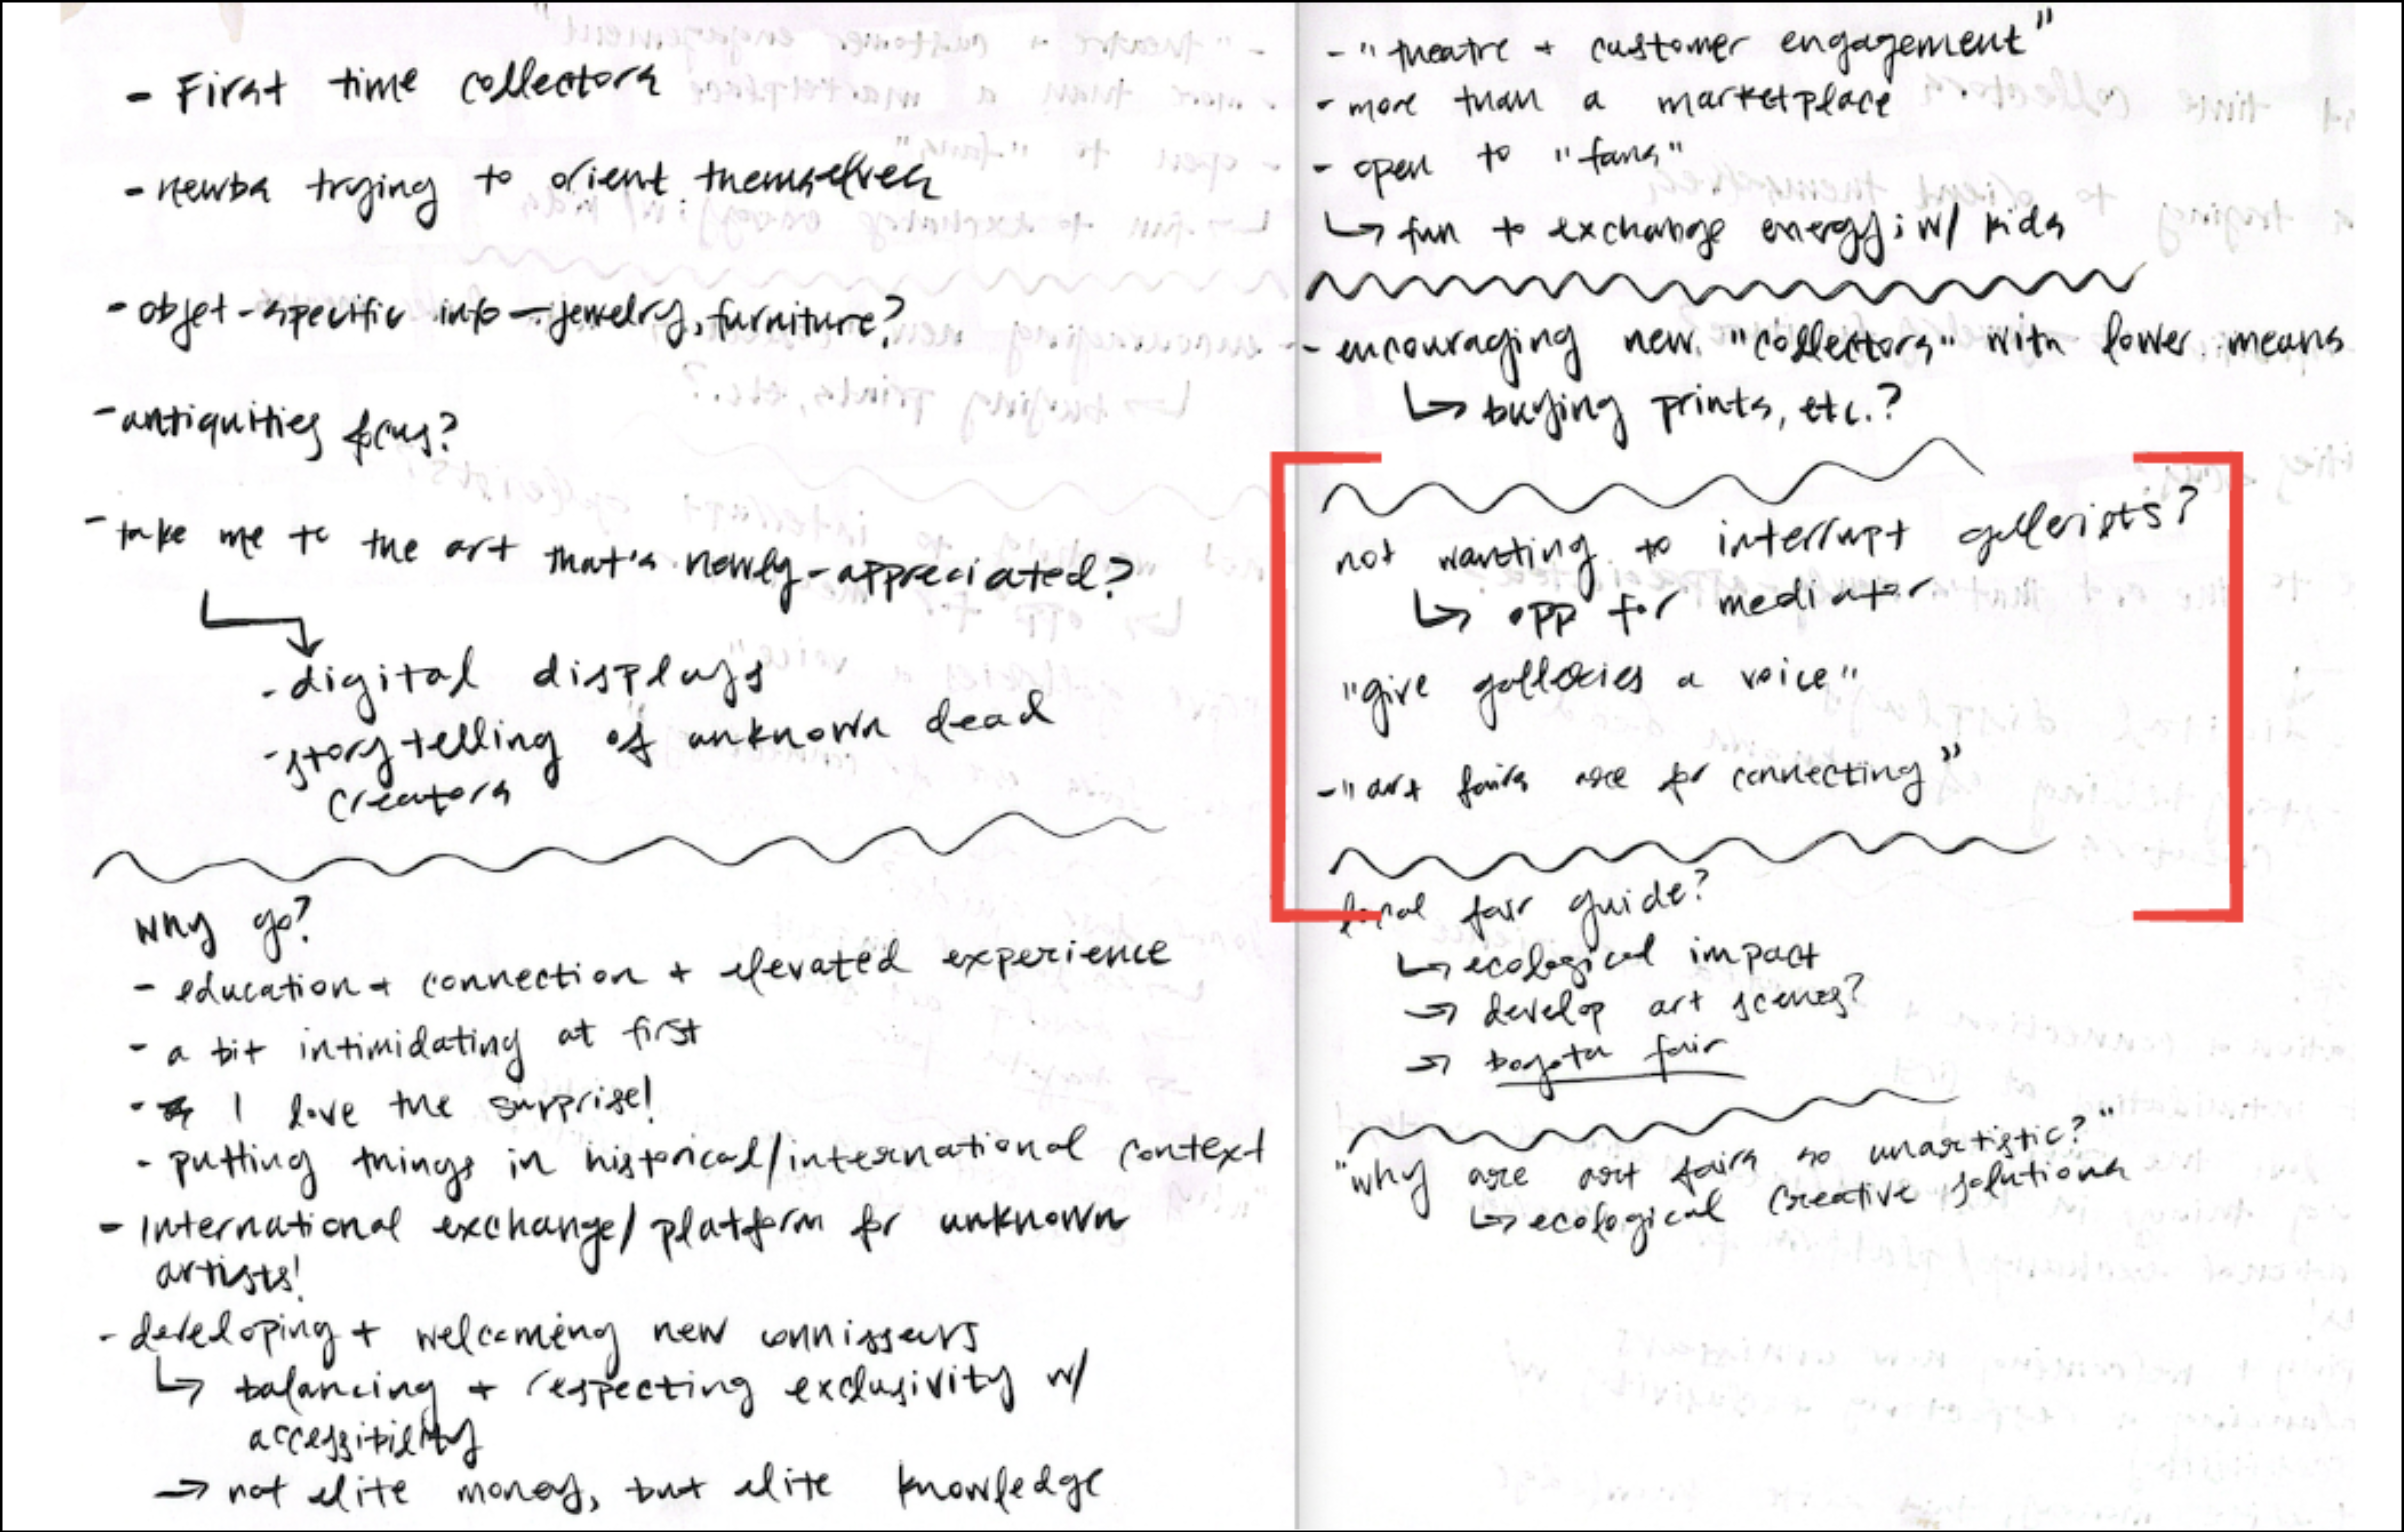 - First time collectors
- newbs trying to orient themselves
- objet-specific info - jewelry, furniture?
- antiquities focus?
- take me to the art that's newly-appreciated?
- digital displays
- storytelling of unknown dead
creators
why go?
- education + connection + elevated experience
- a bit intimidating at first
- I love the surprise!
- putting things in historical/international context
- International exchange/platform for unknown
artists!
- developing + welcoming new connisseurs
↳ balancing + respecting exclusivity w/
accessibility
→ not elite money, but elite knowledge
- "theatre + customer engagement"
- more than a marketplace
- open to "fans"
↳ fun to exchange energy; w/ kids
- encouraging new "collectors" with lower means
↳ buying prints, etc.?
not wanting to interrupt gallerists?
↳ opp for mediator
"give galleries a voice"
- "art fairs are for connecting"
local fair guide?
↳ ecological impact
→ develop art scenes?
→ bogota fair
"why are art fairs so unartistic?"
↳ ecological creative solutions